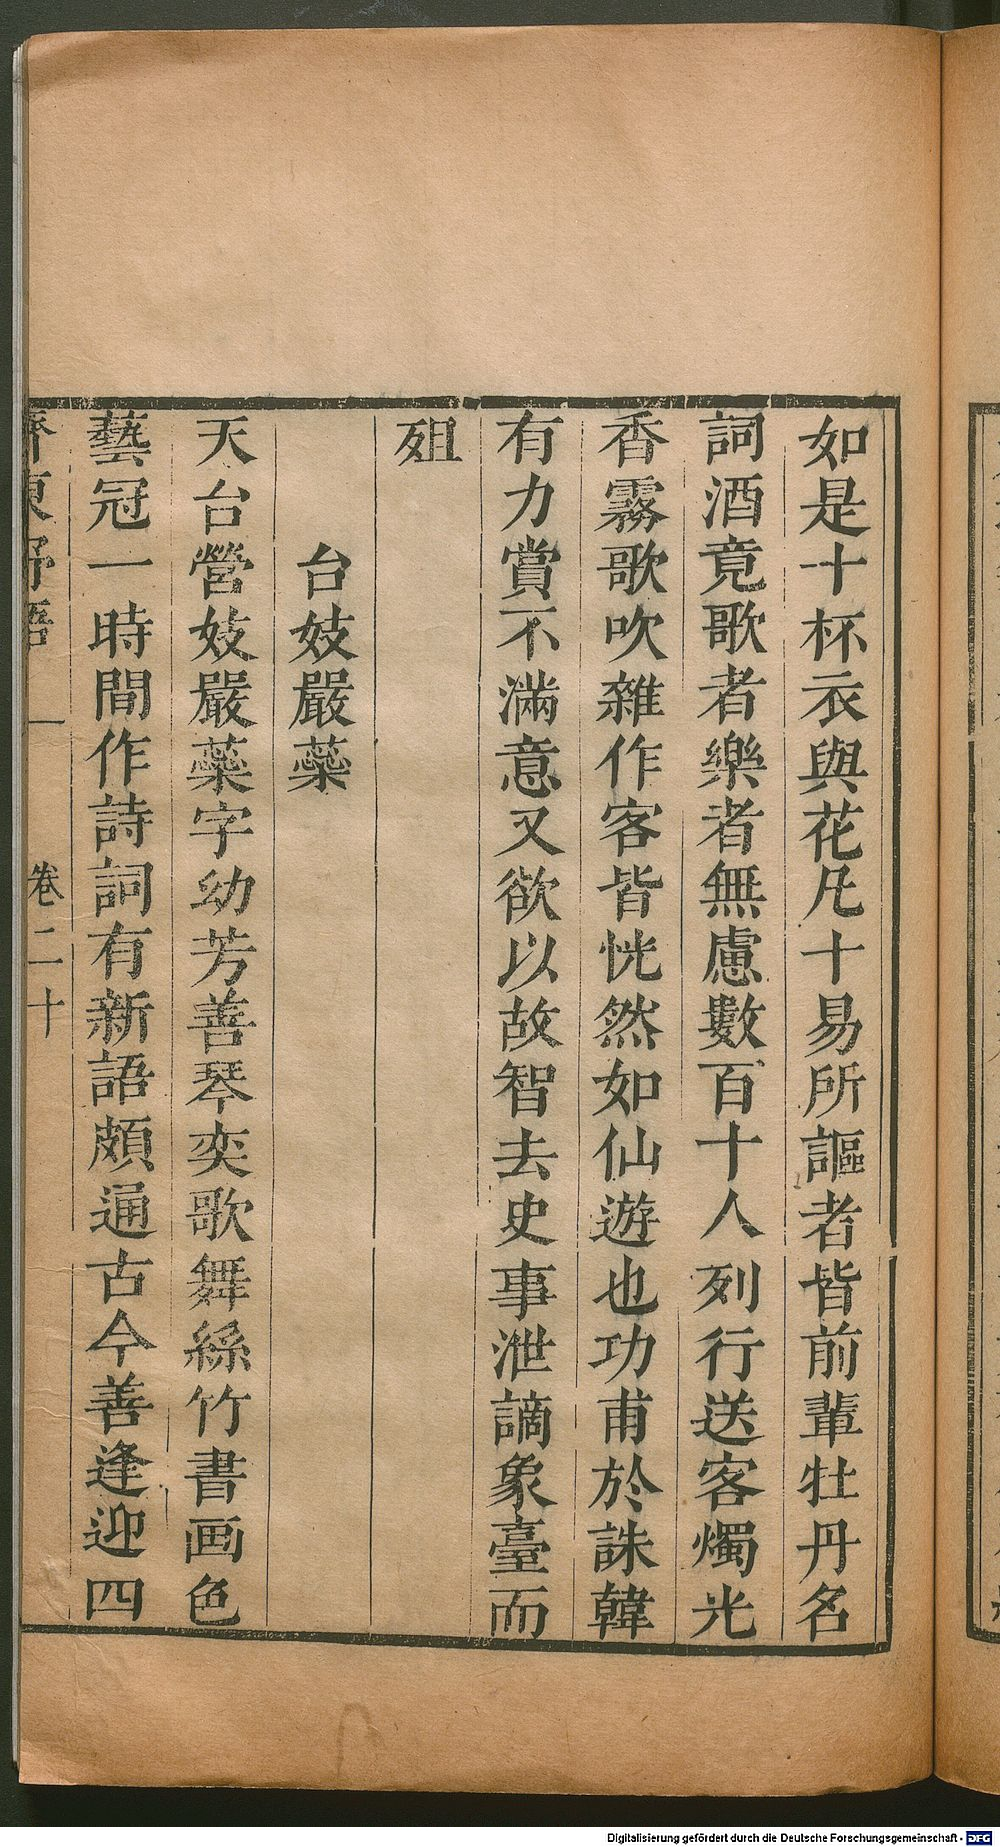 如是十杯衣與花凡十易所謳者皆前輩牡丹名
詞酒竟歌者樂者無慮數百十人列行送客燭光
香霧歌吹雜作客皆恍然如仙遊也功甫於誅韓
有力賞不滿意又欲以故智去史事泄謫象臺而
殂
台妓嚴蘂
天台營妓嚴蘂字幼芳善琴奕歌舞絲竹書画色
藝冠一時間作詩詞有新語頗通古今善逢迎四
齊東野語 卷二十
Digitalisierung gefördert durch die Deutsche Forschungsgemeinschaft - DFG